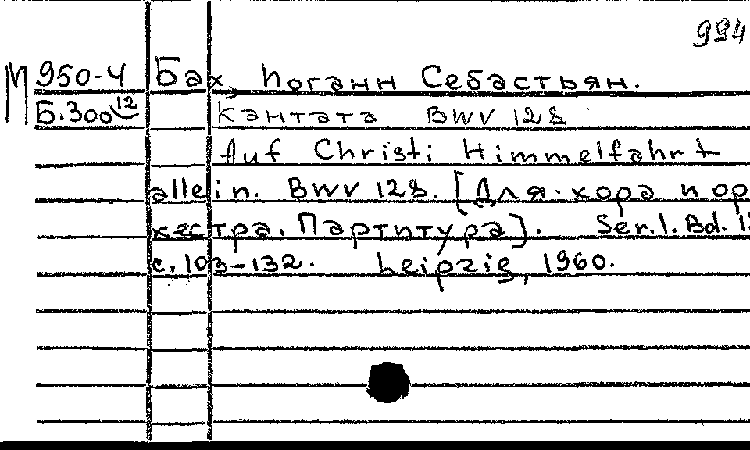 994
М 950-4 Бах, Иоганн Себастьян.
Б.300 12 Кантата BWV 128
Auf Christi Himmelfahrt
allein. BWV 128. [Для хора и ор
кестра. Партитура]. Ser.I. Bd.
с. 103-132. Leipzig, 1960.